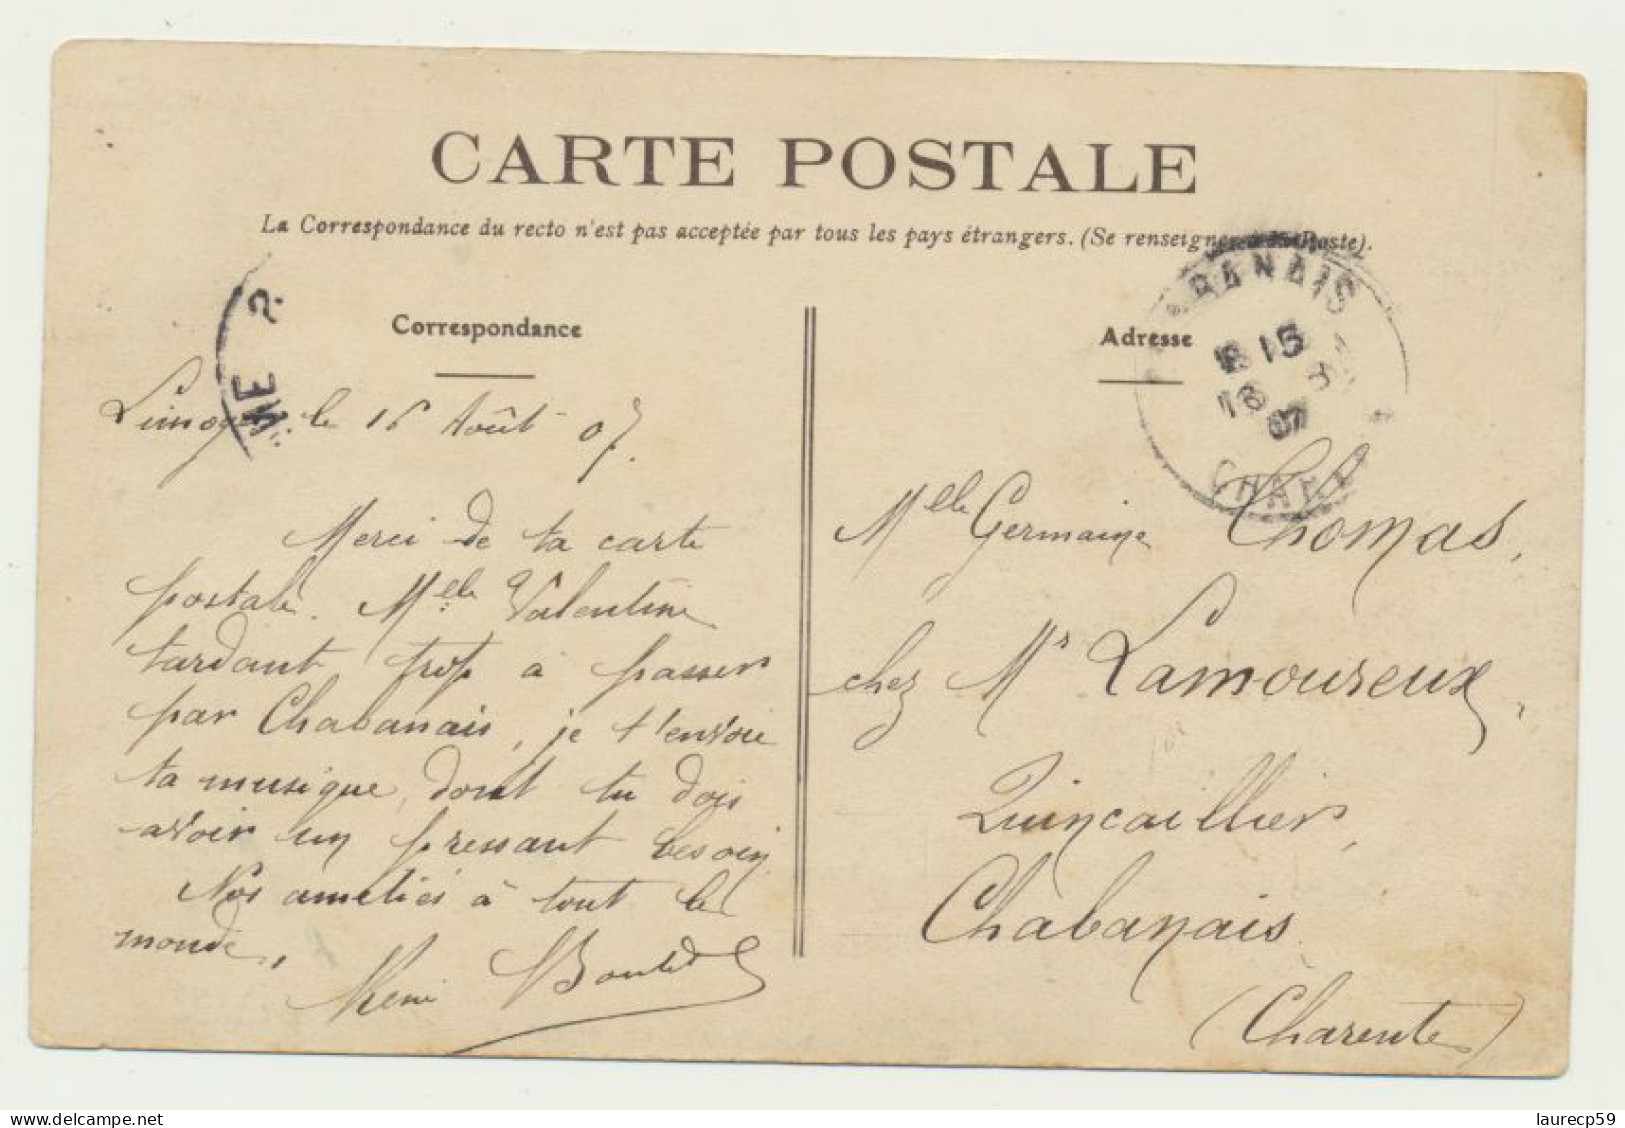 CARTE POSTALE
La Correspondance du recto n'est pas acceptée par tous les pays étrangers. (Se renseigner à la Poste).
Correspondance
Limoges le 16 Août 07.
Merci de ta carte
postale. Melle Valentine
tardant trop à passer
par Chabanais, je t'envoie
ta musique, dont tu dois
avoir un pressant besoin
Nos amitiés à tout le
monde,
Adresse
Melle Germaine Thomas,
chez Mr Lamoureux,
Quincaillier,
Chabanais
(Charente)
BANAIS
15
16
07
CHAR
NE 2
laurecp59